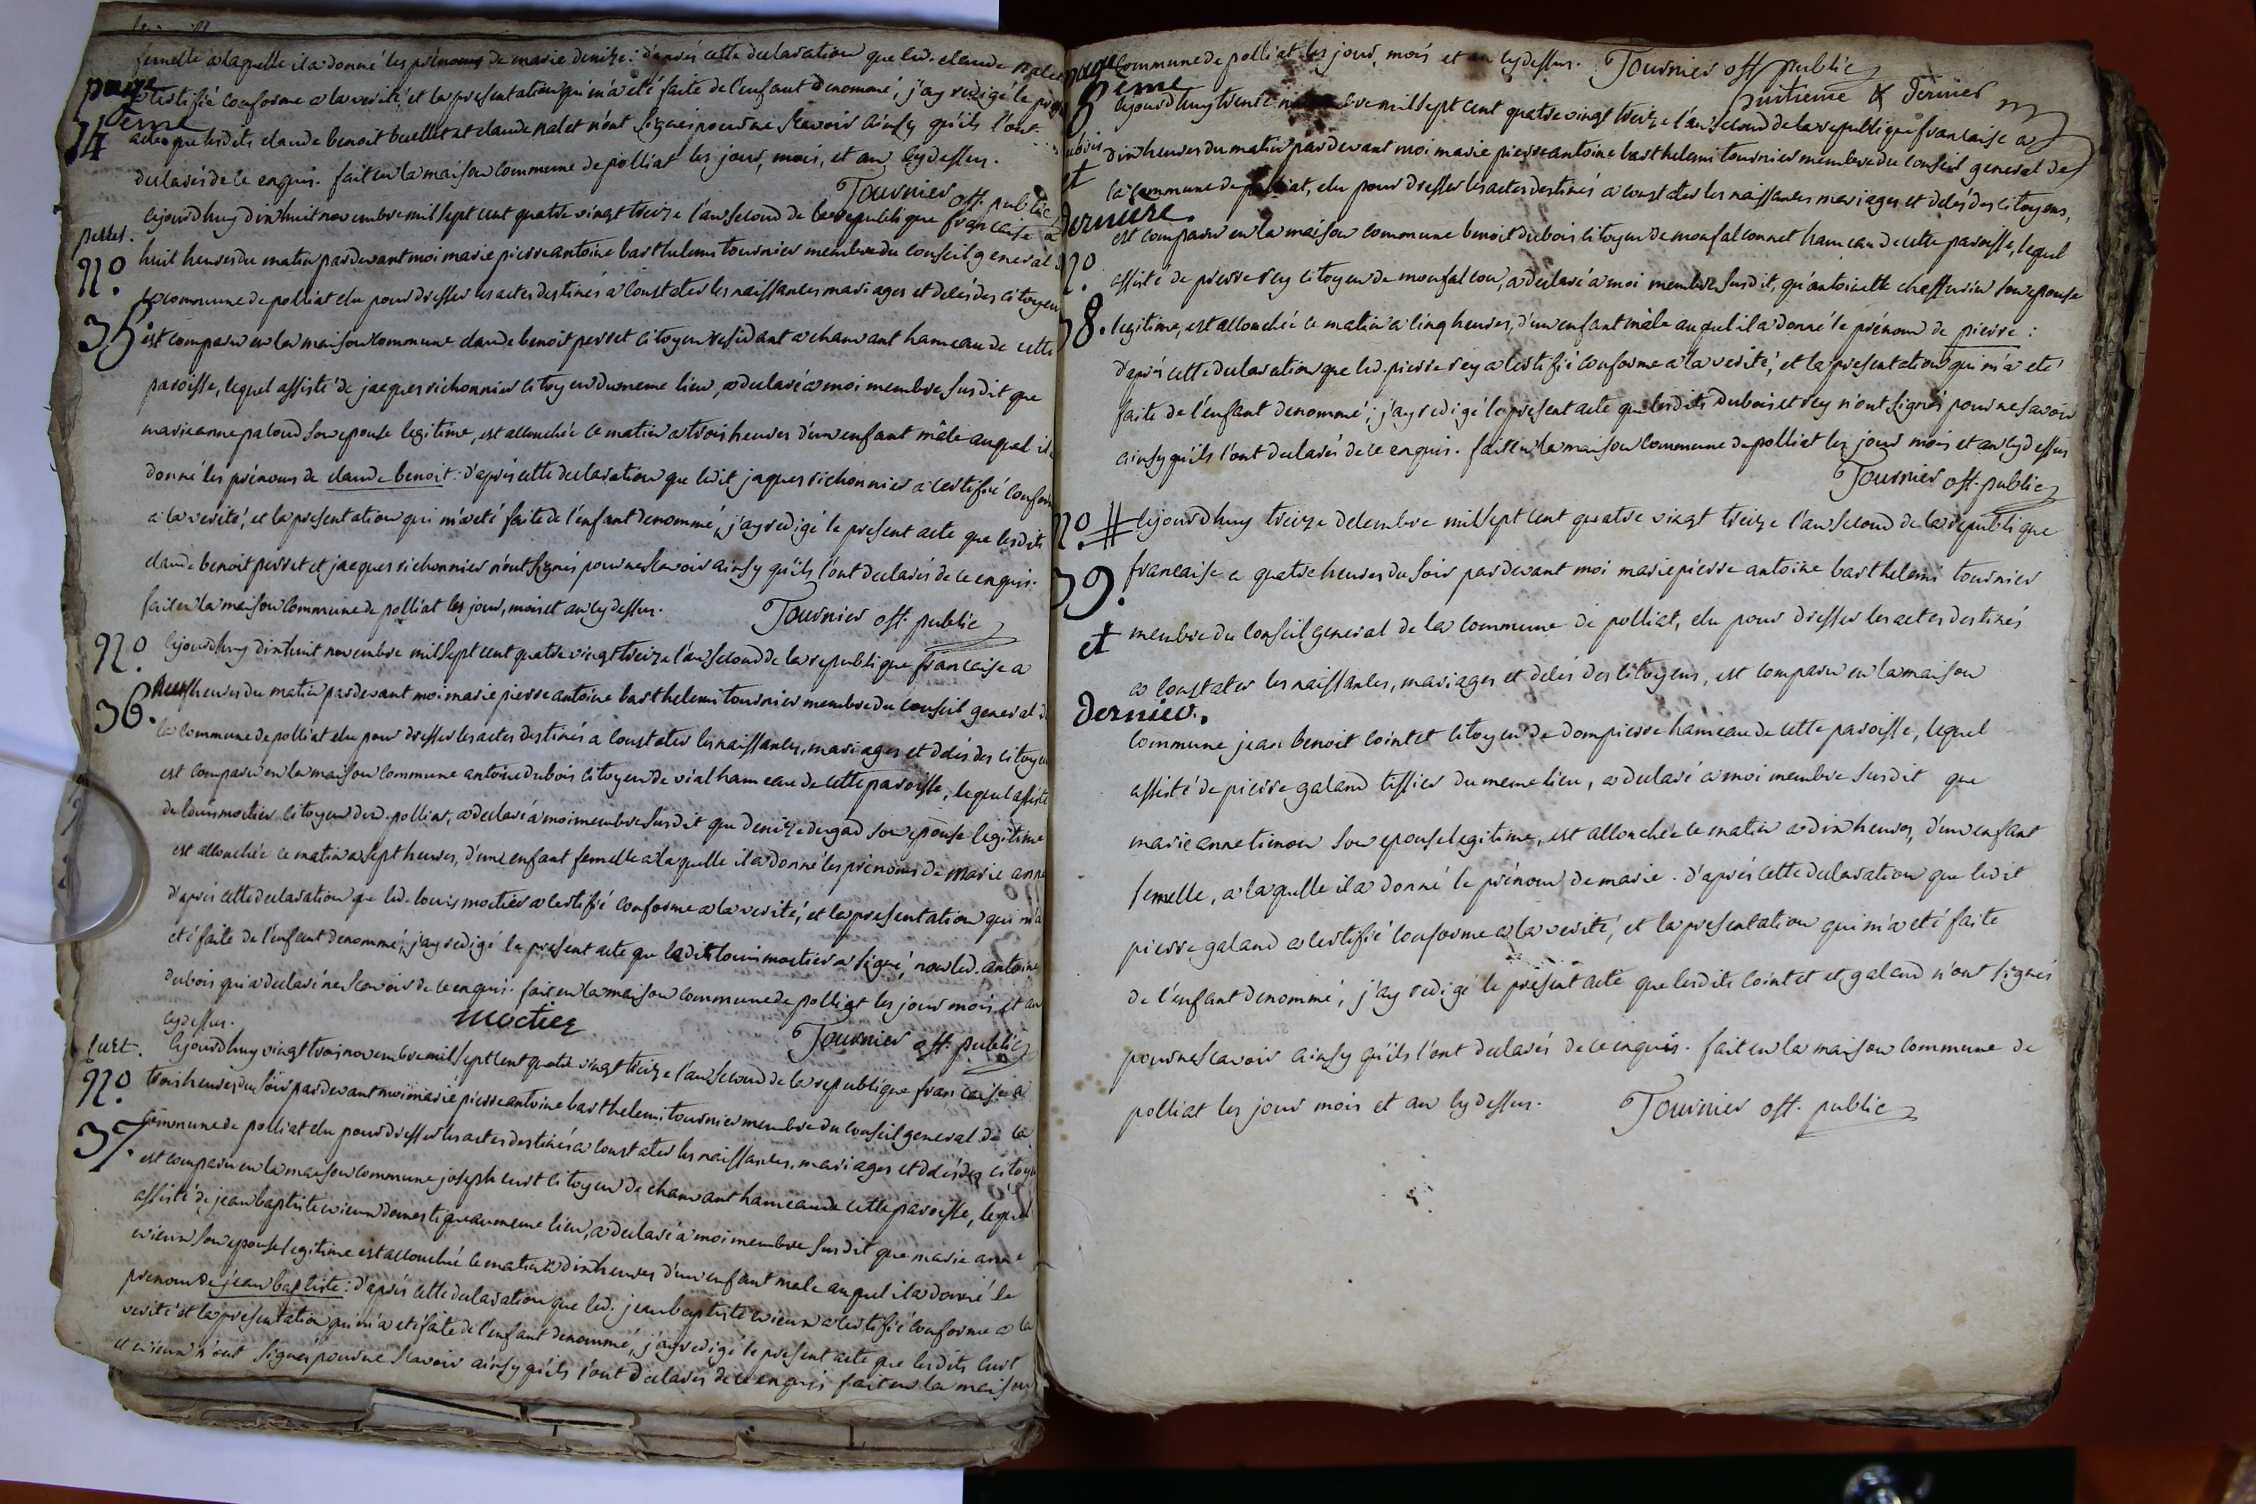 femelle a laquelle il a donné les prénoms de marie denize: d'après cette declaration que led. claude
page
a certifié conforme a la verité, et la presentation qui m'a eté faite de l'enfant denommé; j'ay redigé le
14 eme
acte que lesdits claude benoit buellet et claude n'ont signés pour ne scavoir ainsy qu'ils l'ont
declarés de ce enquis. fait en la maison commune de polliat les jour, mois, et an cy dessus.
Tournier off. public
cejourdhuy dixhuit novembre mil sept cent quatre vingt treize l'an second de la republique francaise a
perret.
huit heures du matin pardevant moi marie pierre antoine barthelemi tournier membre du conseil general
no.
la commune de polliat elu pour dresser les actes destinés a constater les naissances mariages et decés des citoyens
35.
est comparu en la maison commune claude benoit perret citoyen residant a chanvant hameau de cette
paroisse, lequel assisté de jacques richonnier citoyen du meme lieu, a declaré a moi membre susdit que
marie anne paloud son epouse legitime, est accouchée ce matin a trois heures d'un enfant mâle auquel il a
donné les prénoms de claude benoit: d'après cette declaration que ledit jaques richonnier a certifié conforme
a la verité, et la presentation qui m'a eté faite de l'enfant denommé; j'ay redigé le present acte que lesdits
claude benoit perret et jacques richonnier n'ont signés pour ne scavoir ainsy qu'ils l'ont declarés de ce enquis.
fait en la maison commune de polliat les jour, mois et an cy dessus. Tournier off. public
no.
cejourdhuy dixhuit novembre mil sept cent quatre vingt treize l'an second de la republique francaise a
neuf heures du matin pardevant moi marie pierre antoine barthelemi tournier membre du conseil general de
36.
la commune de polliat elu pour dresser les actes destinés a constater les naissances, mariages et décés des citoyens
est comparu en la maison commune antoine dubois citoyen de vial hameau de cette paroisse, lequel assisté
de louis moctier citoyen dud. polliat, a declaré a moi membre susdit que denize dugad son epouse legitime
est accouchée ce matin a sept heures, d'un enfant femelle a laquelle il a donné les prénoms de marie anne
d'après cette declaration que led. louis moctier a certifié conforme a la verité, et la presentation qui m'a
eté faite de l'enfant denommé, j'ay redigé le present acte que ledit louis moctier a signé, non led. antoine
dubois qui a declaré ne scavoir de ce enquis. fait en la maison commune de polliat les jour mois et an
cydessus. moctier Tournier off. public
curt.
cejourdhuy vingt trois novembre mil sept cent quatre vingt treize l'an second de la republique francaise a
no.
trois heures du soir pardevant moi marie pierre antoine barthelemi tournier membre du conseil general de la
37.
commune de polliat elu pour dresser les actes destinés a constater les naissances, mariages et décés des citoyens
est comparu en la maison commune joseph curt citoyen de chanvant hameau de cette paroisse, lequel
assisté de jean baptiste domestique au meme lieu, a declaré a moi membre susdit que marie anne
son epouse legitime est accouchée ce matin a dix heures d'un enfant male auquel il a donné le
prenom de jean baptiste: d'après cette declaration que led. jean baptiste a certifié conforme a la
verité et la presentation qui m'a eté faite de l'enfant denommé, j'ay redigé le present acte que lesdits curt
et n'ont signés pour ne scavoir ainsy qu'ils l'ont declarés de ce enquis fait en la maison
page
commune de polliat les jour, mois et an cy dessus. Tournier off public
8 eme
huitieme & dernier
cejourdhuy trente novembre mil sept cent quatre vingt treize l'an second de la republique francaise a
dubois
dix heures du matin pardevant moi marie pierre antoine barthelemi tournier membre du conseil general de
et
la commune de polliat, elu pour dresser les actes destinés a constater les naissances mariages et decés des citoyens,
derniere.
est comparu en la maison commune benoit dubois citoyen de monfalconnet hameau de cette paroisse, lequel
no
assisté de pierre rey citoyen de monfalcon, a declaré a moi membre susdit, qu'antoinette chesseurin son epouse
38.
legitime, est accouchée ce matin a cinq heures, d'un enfant mâle auquel il a donné le prénom de pierre:
d'après cette declaration que led. pierre rey a certifié conforme a la verité, et la presentation qui m'a eté
faite de l'enfant denommé; j'ay redigé le present acte que lesdits dubois et rey n'ont signés pour ne savoir
ainsy qu'ils l'ont declarés de ce enquis. fait en la maison commune de polliat les jour mois et an cy dessus
Tournier off. public
no.
cejourdhuy treize decembre mil sept cent quatre vingt treize l'an second de la republique
39.
francaise a quatre heures du soir pardevant moi marie pierre antoine barthelemi tournier
et
membre du conseil general de la commune de polliat, elu pour dresser les actes destinés
a constater les naissances, mariages et decés des citoyens, est comparu en la maison
dernier.
commune jean benoit cointet citoyen de dompierre hameau de cette paroisse, lequel
assisté de pierre galand tissier du meme lieu, a declaré a moi membre susdit que
marie anne timon son epouse legitime, est accouchée ce matin a dix heures, d'un enfant
femelle, a laquelle il a donné le prénom de marie. d'après cette declaration que ledit
pierre galand a certifié conforme a la verité, et la presentation qui m'a eté faite
de l'enfant denommé, j'ay redigé le présent acte que lesdits cointet et galand n'ont signés
pour ne scavoir ainsy qu'ils l'ont declarés de ce enquis. fait en la maison commune de
polliat les jour mois et an cy dessus. Tournier off. public